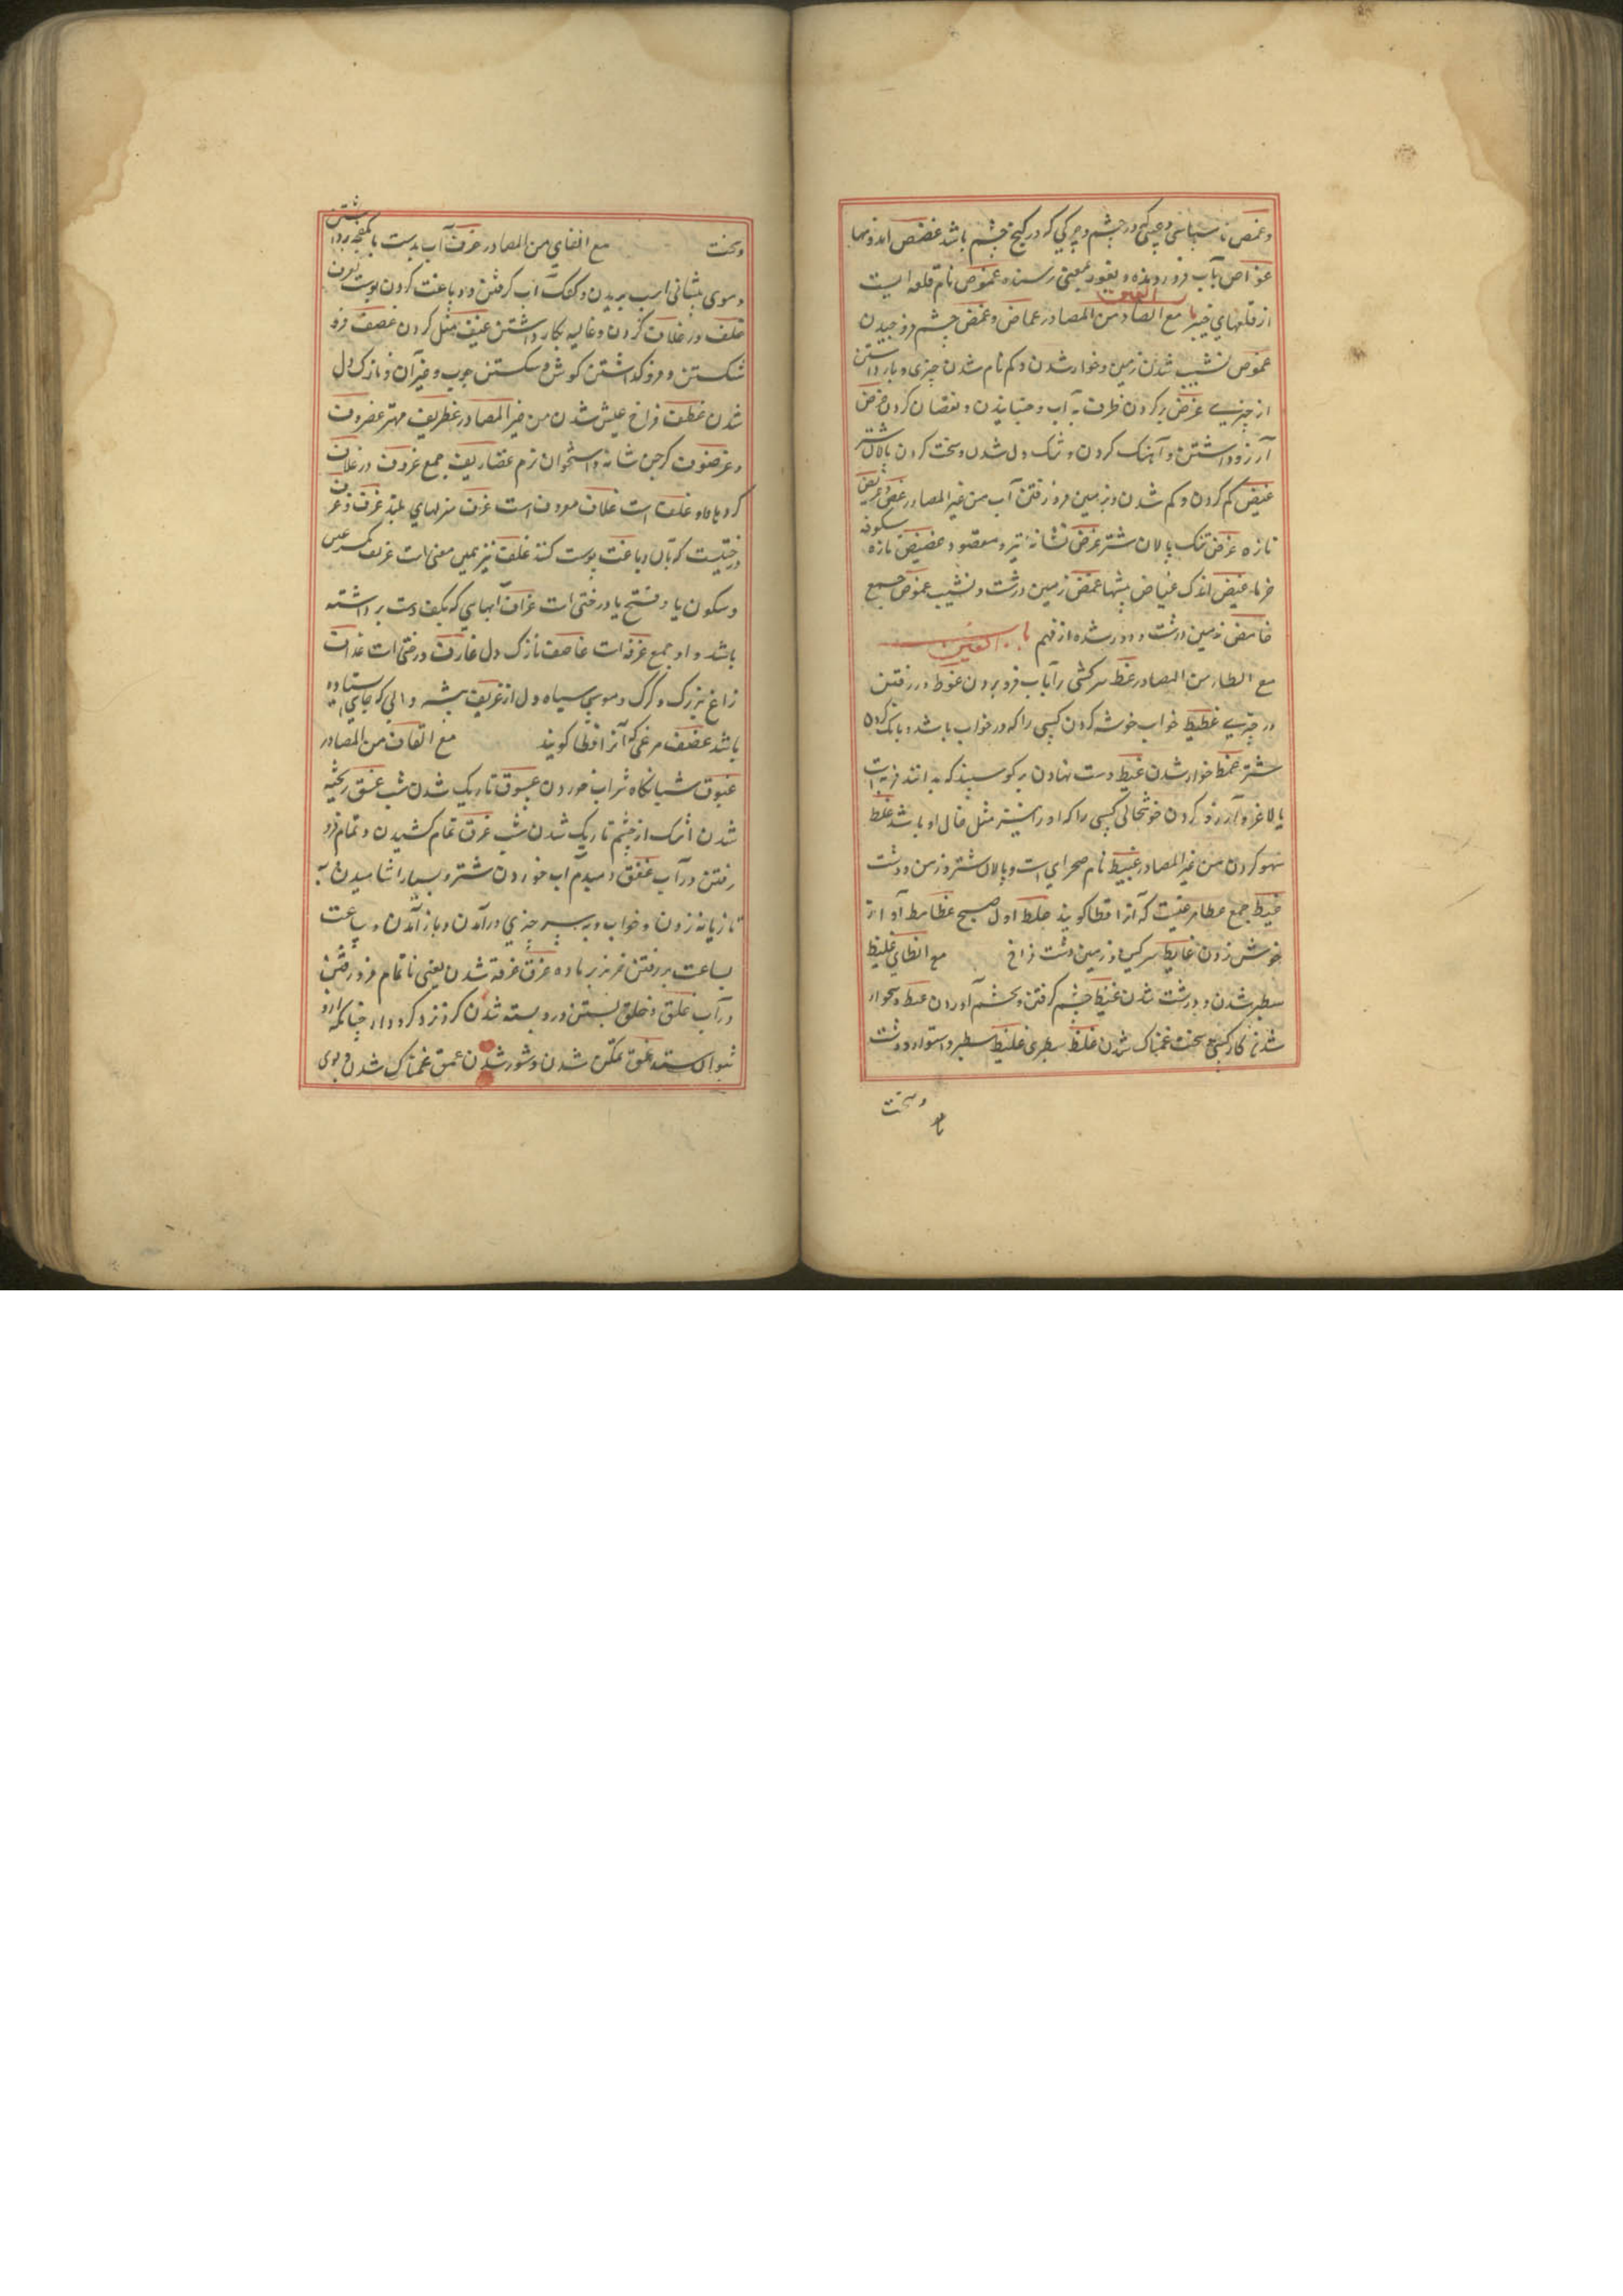 و غمص ناسپاسی و چرکی در چشم و چرکی که در کنج چشم باشد غصص اندوهها
غواص بآب فرو رونده و بغور معنی رسنده غموص نام قلعه ایست
از قلعهای خیبر باب الغین مع الضاد من المصادر غماض و غمض چشم فروخوابیدن
غموض نشیب شدن زمین و خوار شدن و کم نام شدن چیزی و باز داشتن
از چیزی غرض پر کردن ظرف به آب و جنبانیدن و نقصان کردن غرض
آرزو داشتن و آهنگ کردن و تنگ دل شدن و سخت کردن پالان شتر
غیض کم کردن و کم شدن و بزمین فرو رفتن آب من غیر المصادر غض و غریض
تازه غرض تنگ پالان شتر غرض نشانه تیر و مقصود غضیض تازه شکوفه
خرما غیض اندک غیاض بیشها غمض زمین درشت و نشیب غموض جمع
غامض زمین درشت و دور شده از فهم باب الغین
مع الطاء من المصادر غط سر کسی را بآب فرو بردن غوط در رفتن
در چیزی غطیط خواب خوشه کردن کسی را که در خواب باشد و بانک کردن
شتر غمط خوار شدن غبط دست نهادن بر گوسپند که بدانند فربه است
یا لاغر و آرزو کردن خوشحالی کسی را که او را نیز مثل حال او باشد غلط
سهو کردن من غیر المصادر غبیط نام صحرای است و پالان شتر و زمین درشت
غبط جمع غطاط مرغیست که آنرا قطا کویند غطاط اول صبح غطامط آواز
جوش زدن غایط سرکین و زمین دشت فراخ مع الظای غلیظ
سطبر شدن و درشت شدن غیظ خشم گرفتن و بخشم آوردن غنظ دشخوار
شدن کار کسی سخت غمناک شدن غلظ سطبری غلیظ سطبر و استوار و درشت
و سخت
و سخت مع الفای من المصادر غرف آب بدست یا بکفچه برداشتن
و موی پیشانی اسب بریدن و کفک آب گرفتن و دباغت کردن پوست بغرف
غلف در غلاف کردن و غالیه بکار داشتن عنیف مثل کردن غضف فرو
شکستن و فرو گذاشتن گوش و شکستن چوب و غیر آن و نازک دل
شدن غطف فراخ عیش شدن من غیر المصادر غطریف مهتر غضروف
و غرضوف کرجن شانه و استخوان نرم غضاریف جمع غروف در غلاف
کرده یا غلف است غلاف معروف است غرف منزلهای بلند غرف و غرف
درختیست که بآن دباغت پوست کنند غلف نیز بهمین معنی است غریف بکسر غین
و سکون یا و فتح یا درختی است غراف آبهای که بکف دست برداشته
باشد و او جمع غرفه است غاضف نازک دل غارف درختی است غداف
زاغ بزرگ و کرک و موی سیاه و دل از غریف بیشه و آبی که جای استاده
باشد غضف مرغی که آنرا قطا کویند مع القاف من المصادر
غبوق شبانگاه شراب خوردن غسوق تاریک شدن شب غسق ریخته
شدن اشک از چشم تاریک شدن شب غرق تمام کشیدن و تمام فرو
رفتن در آب غفق دمبدم آب خوردن شتر و بسیار اشامیدن به
تازیانه زدن و خواب و بر سر چیزی درآمدن و باز آمدن و ساعت
بساعت بر رفتن خر نر بر ماده غرق غرقه شدن یعنی ناتمام فرو رفتن
در آب غلق و غلق بستن در و بسته شدن کرو نزد کرو دار چنانکه او را
نتوان ستد غمق نمکین شدن و شور شدن غمق غمناک شدن و بوی